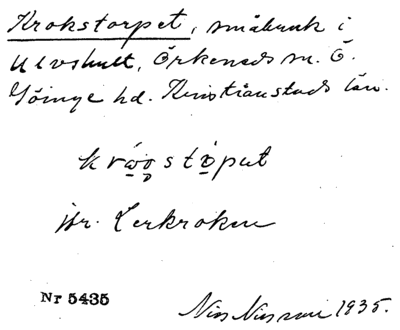 Krokstorpet, småbruk i
Ulvshult, Örkeneds sn. Ö.
Göinge hd. Kristianstads län.
kråostöput
jfr. Lerkroken
Nr 5435
Nils Nilsson 1935.